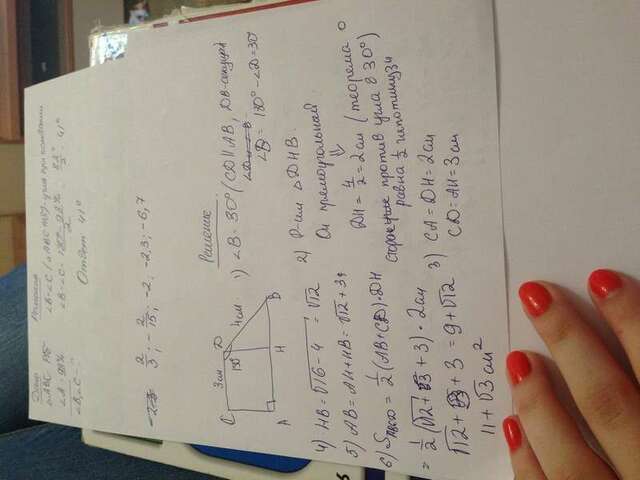 Дано
Решение
△ABC - р/б
∠A - 98%
∠B, ∠C - ?
∠B = ∠C (△ABC - р/б) - углы при основании
∠B = ∠C = 180° - 98% / 2 = 82° / 2 = 41°
Ответ 41°
2/3; -2/15; -2; -2,3; -6,7
C 3см D
150° 4см
A H B
Решение
1) ∠B - 30° (CD || AB, DB - секущая
∠B = 180° - ∠D = 30°
2) Р-им △DHB.
Он прямоугольный
⇓
DH = 4/2 = 2см (теорема о
стороне против угла в 30°)
равна 1/2 гипотинузы
3) CA = DH = 2см
CD = AH = 3см
4) HB = √16 - 4 = √12
5) AB = AH + HB = √12 + 3
6) S_ABCD = 1/2 (AB + CD) · DH
= 1/2 (√12 + 3 + 3) · 2см
√12 + 3 + 3 = 9 + √12
11 + √3 см²